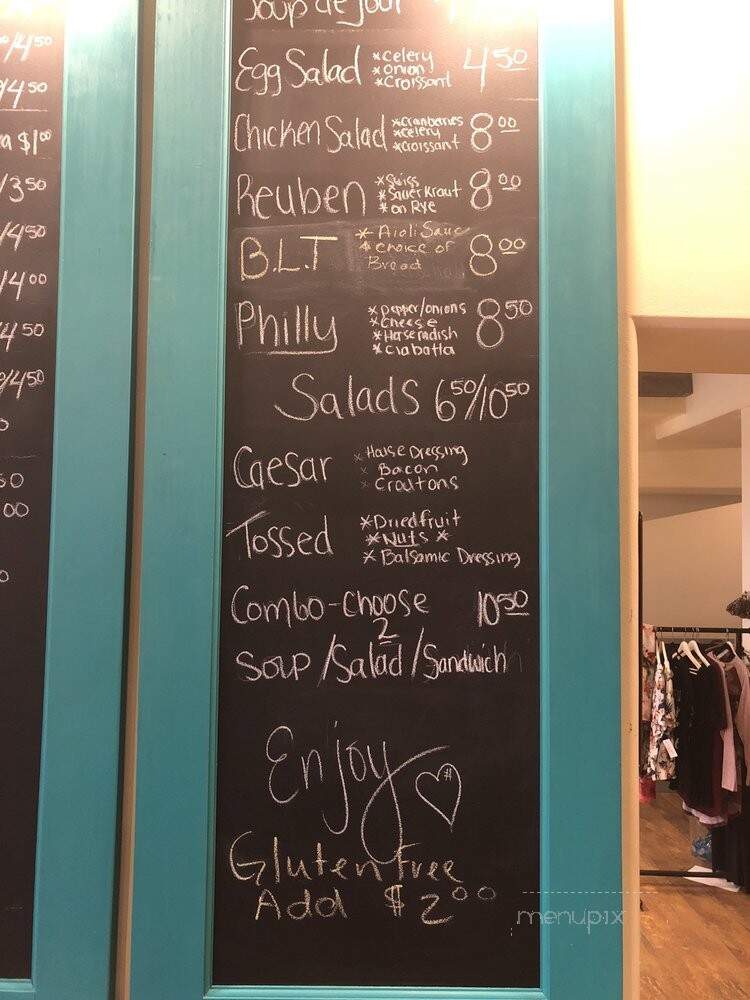 Soup de Jour
Egg Salad *celery *onion *Croissant 4 50
Chicken Salad *Cranberries *celery *croissant 8 00
Reuben *Swiss *Sauer Kraut *on Rye 8 00
B.L.T *Aioli Sauce *choice of Bread 8 00
Philly *Pepper/onions *cheese *Horseradish *Ciabatta 8 50
Salads 6 50/10 50
Caesar *House Dressing *Bacon *Croutons
Tossed *Dried fruit *Nuts* *Balsamic Dressing
Combo-Choose 2 10 50
Soup/Salad/Sandwich
Enjoy
Gluten Free
Add $2 00
/4 50
/4 50
$1 00
/3 50
/4 50
/4 00
/4 50
/4 50
50
00
menupix